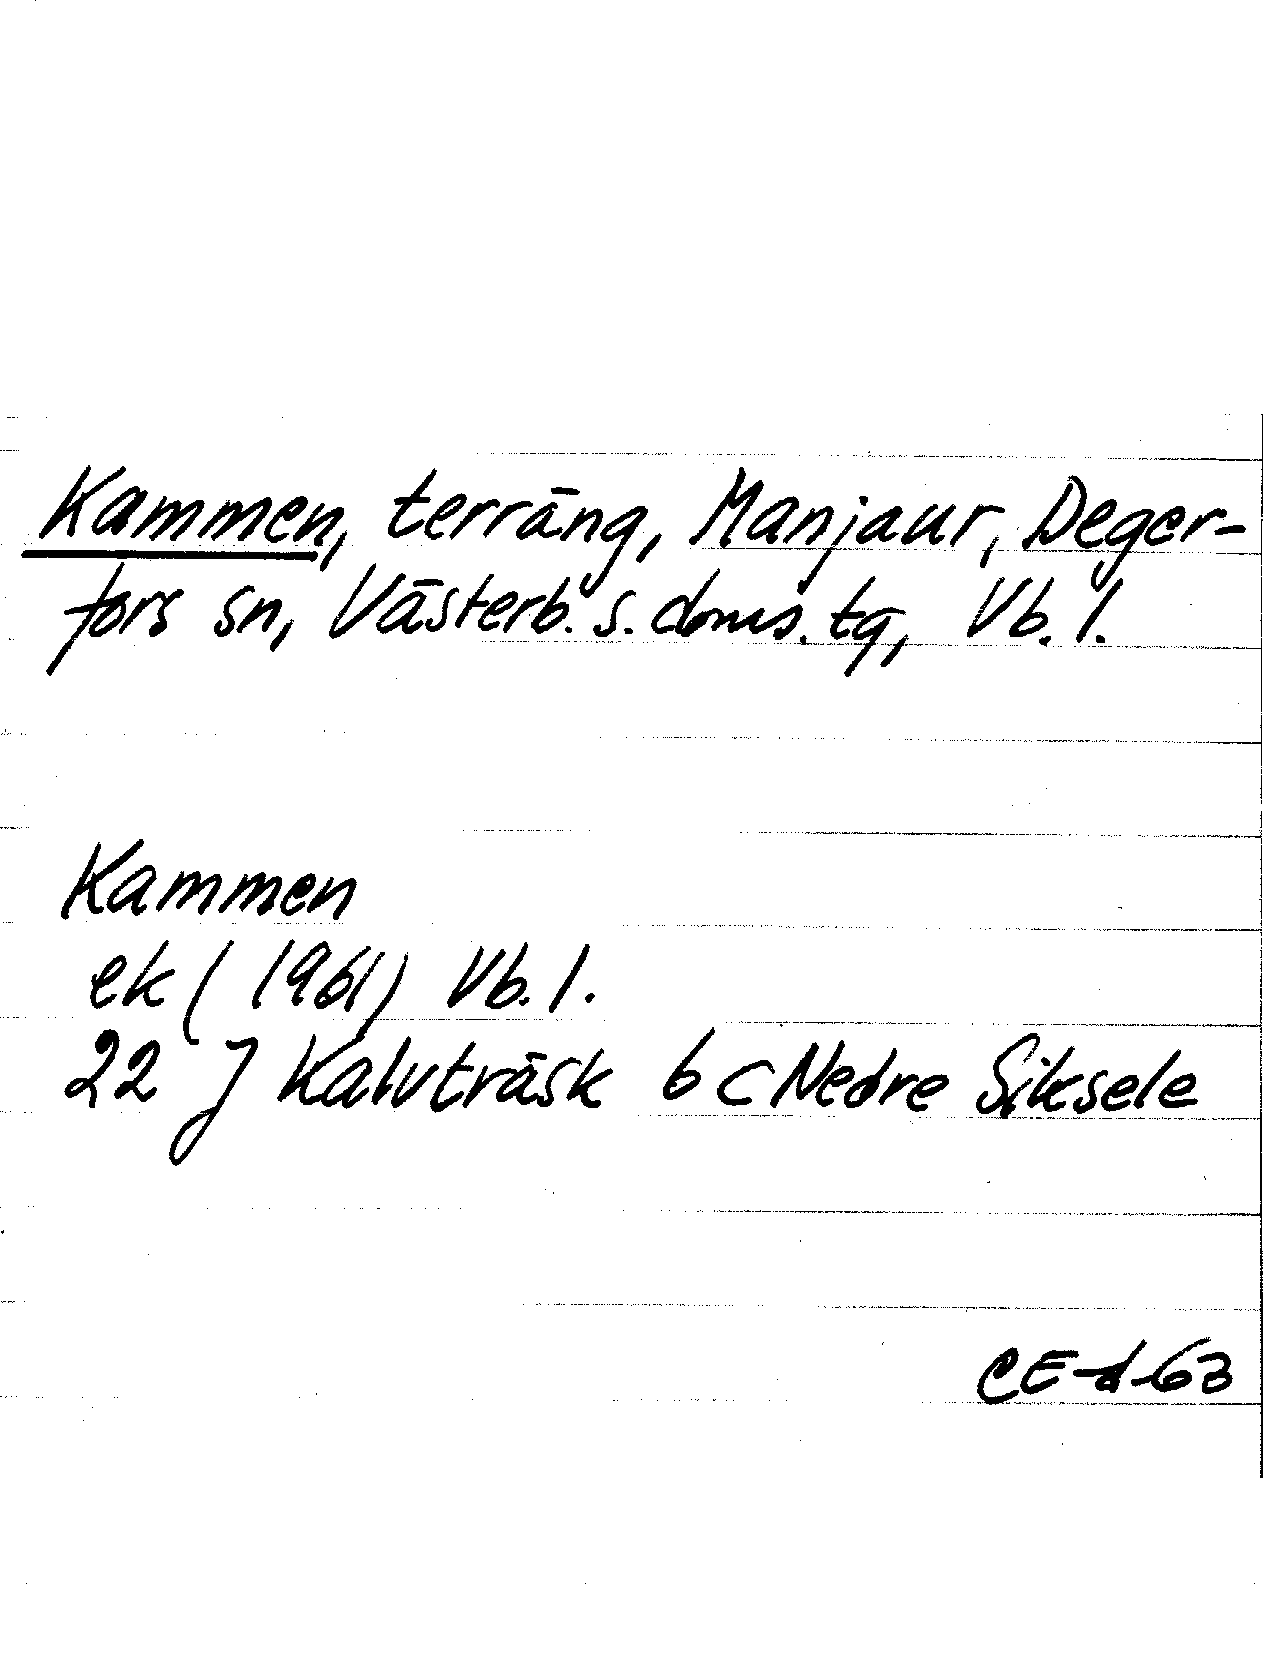 Kammen, terräng, Manjaur, Deger-
fors sn, Västerb. s. doms. tg, Vb. l.
Kammen
ek (1961) Vb. l.
22 J Kalvträsk 6 c Nedre Siksele
CE-d-63